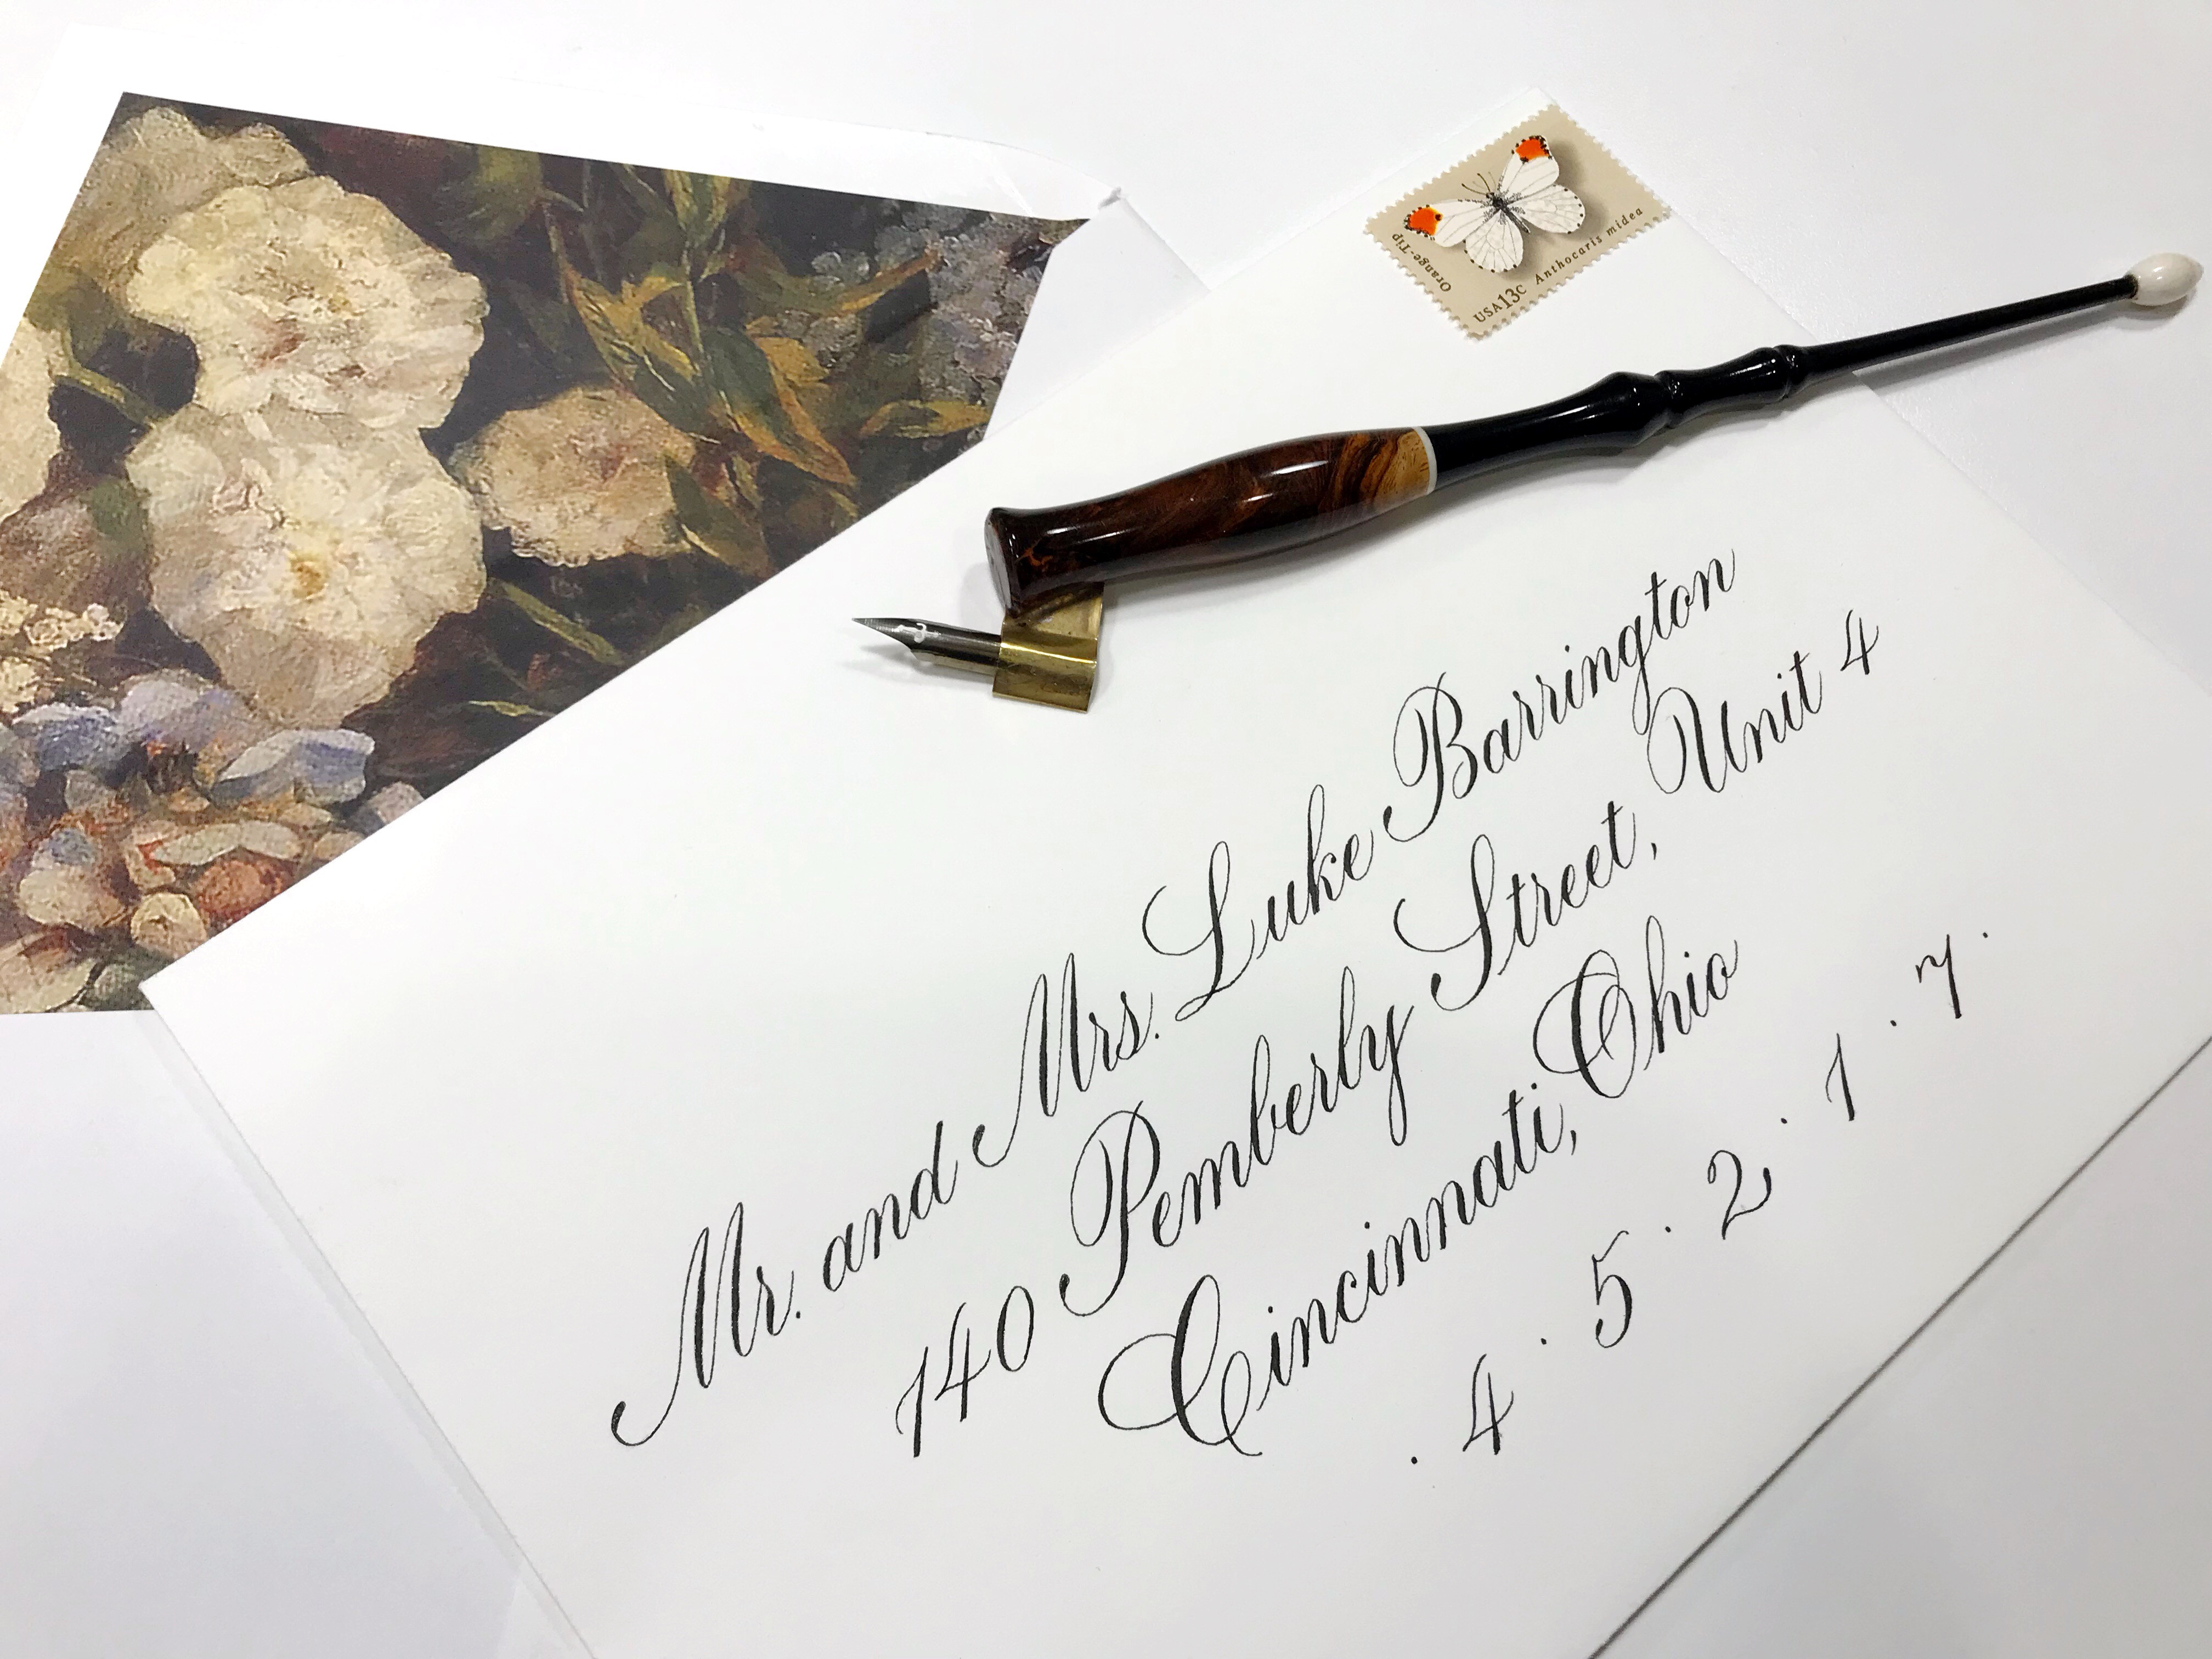 Orange-Tip
USA 13c Anthocaris midea
Mr. and Mrs. Luke Barrington
140 Pemberly Street, Unit 4
Cincinnati, Ohio
. 4 . 5 . 2 . 1 . 7 .